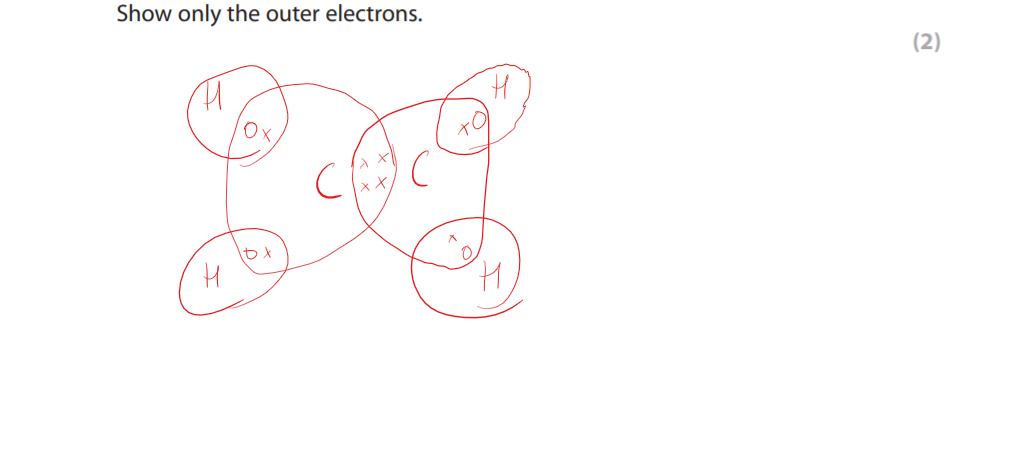 Show only the outer electrons.
(2)
H H
O x x O
x x
C C
x x
O x x O
H H